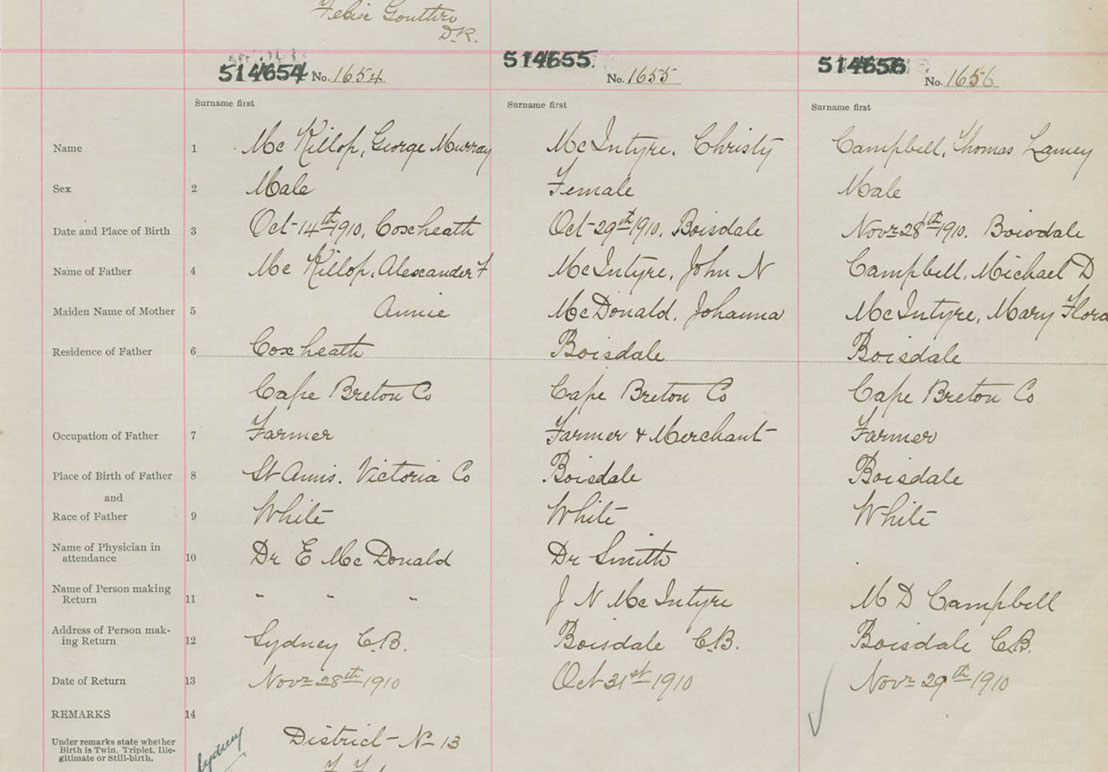 Felix Gouthro
D.R.
514654 No. 1654
514655 No. 1655
514656 No. 1656
Surname first Surname first Surname first
Name 1 Mc Killop, George Murray McIntyre, Christy Campbell, Thomas Lamey
Sex 2 Male Female Male
Date and Place of Birth 3 Oct-14th 1910, Coxheath Oct-29th 1910, Boisdale Novr 28th 1910, Boisdale
Name of Father 4 Mc Killop, Alexander F McIntyre, John N Campbell, Michael D
Maiden Name of Mother 5 Annie McDonald, Johanna McIntyre, Mary Flora
Residence of Father 6 Coxheath Boisdale Boisdale
Cape Breton Co Cape Breton Co Cape Breton Co
Occupation of Father 7 Farmer Farmer & Merchant Farmer
Place of Birth of Father 8 St Anns. Victoria Co Boisdale Boisdale
and
Race of Father 9 White White White
Name of Physician in
attendance 10 Dr E McDonald Dr Smith
Name of Person making
Return 11 " " " J N McIntyre M D Campbell
Address of Person mak-
ing Return 12 Sydney C.B. Boisdale C.B. Boisdale C.B.
Date of Return 13 Novr 28th 1910 Oct 31st 1910 Novr 29th 1910
REMARKS 14
Under remarks state whether
Birth is Twin, Triplet, Ille-
gitimate or Still-birth.
Sydney
District-No 13